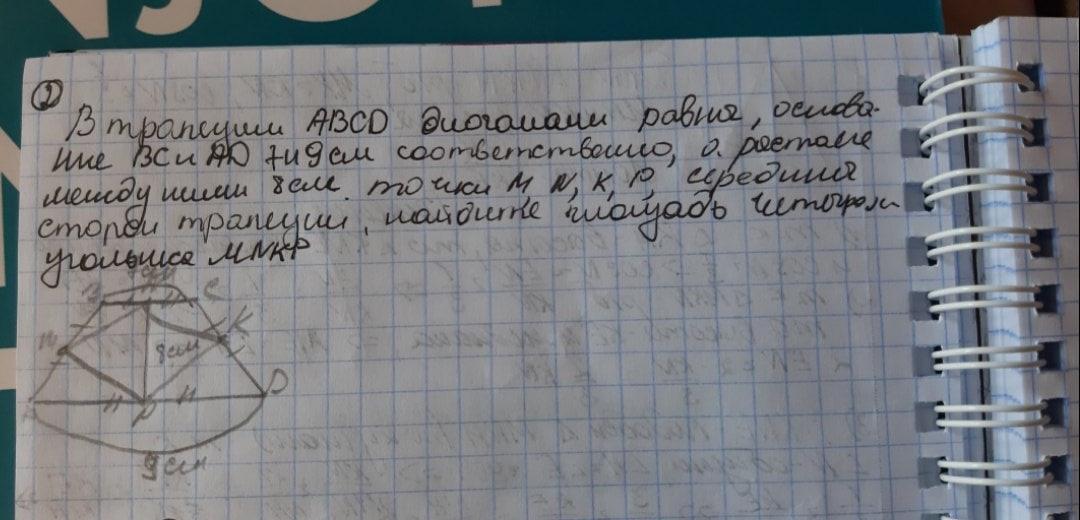 2
В трапеции ABCD диагонали равны, основа-
ние BC и AD 7 и 9 см соответственно, а растояние
между ними 8 см. точки M, N, K, P, середины
сторон трапеции, найдите площадь четырех
угольника MNKP
B
C
M
K
8см
P
D
9 см